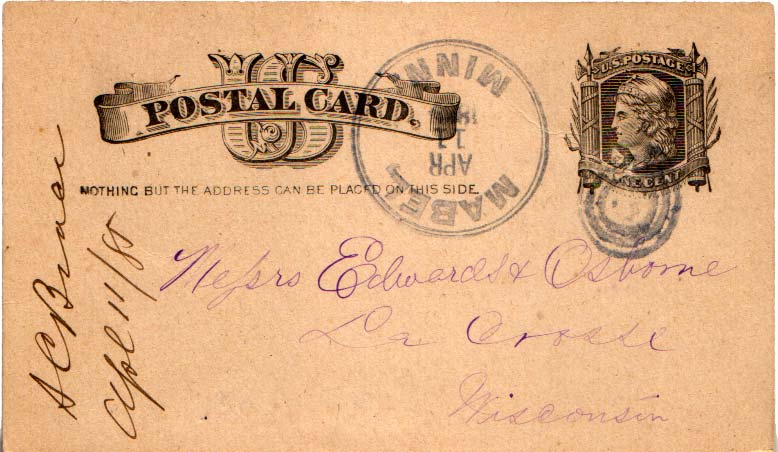 US
POSTAL CARD.
NOTHING BUT THE ADDRESS CAN BE PLACED ON THIS SIDE.
U.S. POSTAGE
ONE CENT
MABEL
MINN
APR
11
Messrs Edwards & Osborne
La Crosse
Wisconsin
Apl 11/80